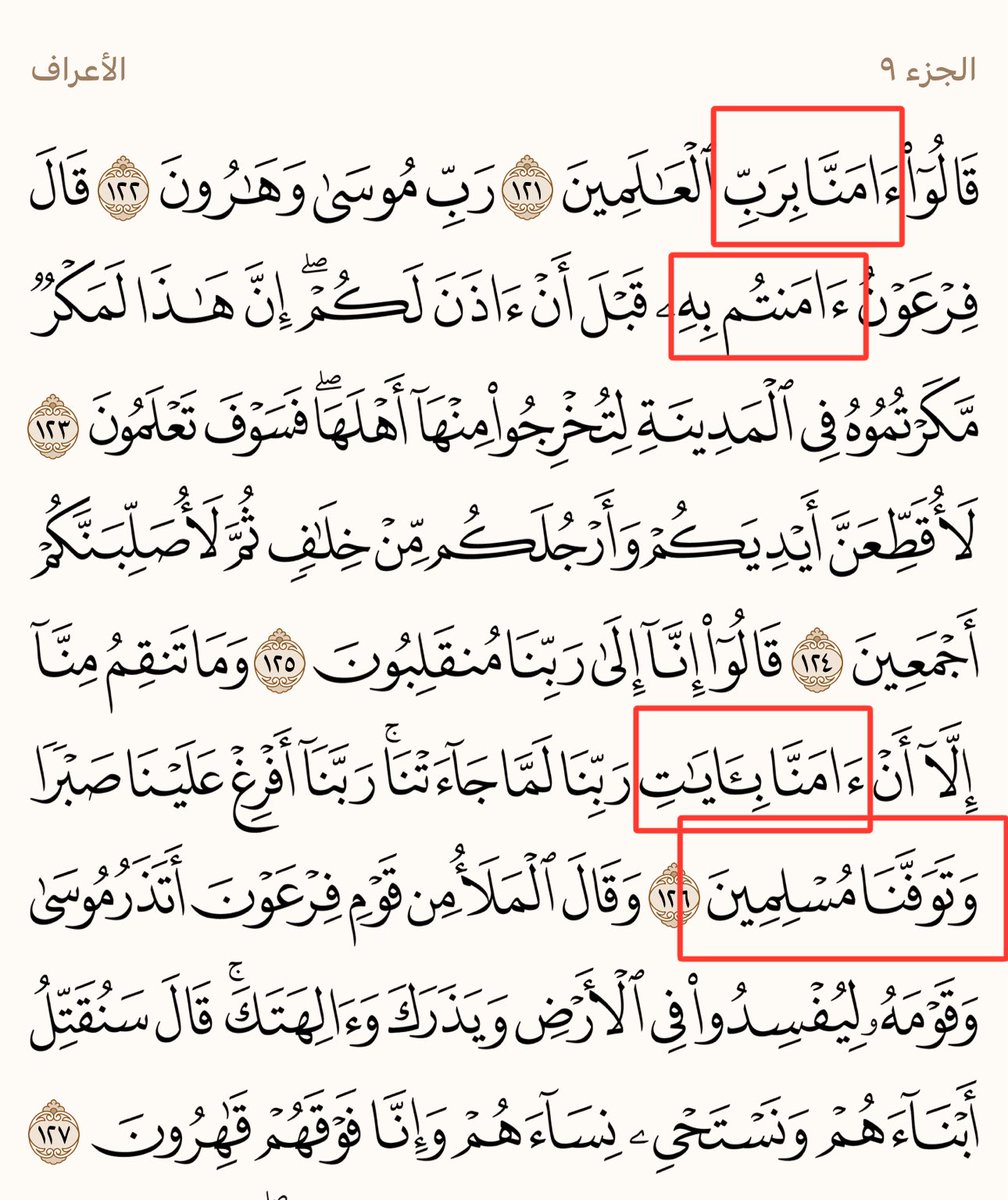 الجزء ٩
الأعراف
قَالُوٓا۟ ءَامَنَّا بِرَبِّ ٱلْعَـٰلَمِينَ ١٢١ رَبِّ مُوسَىٰ وَهَـٰرُونَ ١٢٢ قَالَ
فِرْعَوْنُ ءَامَنتُم بِهِۦ قَبْلَ أَنْ ءَاذَنَ لَكُمْ ۖ إِنَّ هَـٰذَا لَمَكْرٌ
مَّكَرْتُمُوهُ فِى ٱلْمَدِينَةِ لِتُخْرِجُوا۟ مِنْهَآ أَهْلَهَا ۖ فَسَوْفَ تَعْلَمُونَ ١٢٣
لَأُقَطِّعَنَّ أَيْدِيَكُمْ وَأَرْجُلَكُم مِّنْ خِلَـٰفٍ ثُمَّ لَأُصَلِّبَنَّكُمْ
أَجْمَعِينَ ١٢٤ قَالُوٓا۟ إِنَّآ إِلَىٰ رَبِّنَا مُنقَلِبُونَ ١٢٥ وَمَا تَنقِمُ مِنَّآ
إِلَّآ أَنْ ءَامَنَّا بِـَٔايَـٰتِ رَبِّنَا لَمَّا جَآءَتْنَا ۚ رَبَّنَآ أَفْرِغْ عَلَيْنَا صَبْرًا
وَتَوَفَّنَا مُسْلِمِينَ ١٢٦ وَقَالَ ٱلْمَلَأُ مِن قَوْمِ فِرْعَوْنَ أَتَذَرُ مُوسَىٰ
وَقَوْمَهُۥ لِيُفْسِدُوا۟ فِى ٱلْأَرْضِ وَيَذَرَكَ وَءَالِهَتَكَ ۚ قَالَ سَنُقَتِّلُ
أَبْنَآءَهُمْ وَنَسْتَحْىِۦ نِسَآءَهُمْ وَإِنَّا فَوْقَهُمْ قَـٰهِرُونَ ١٢٧